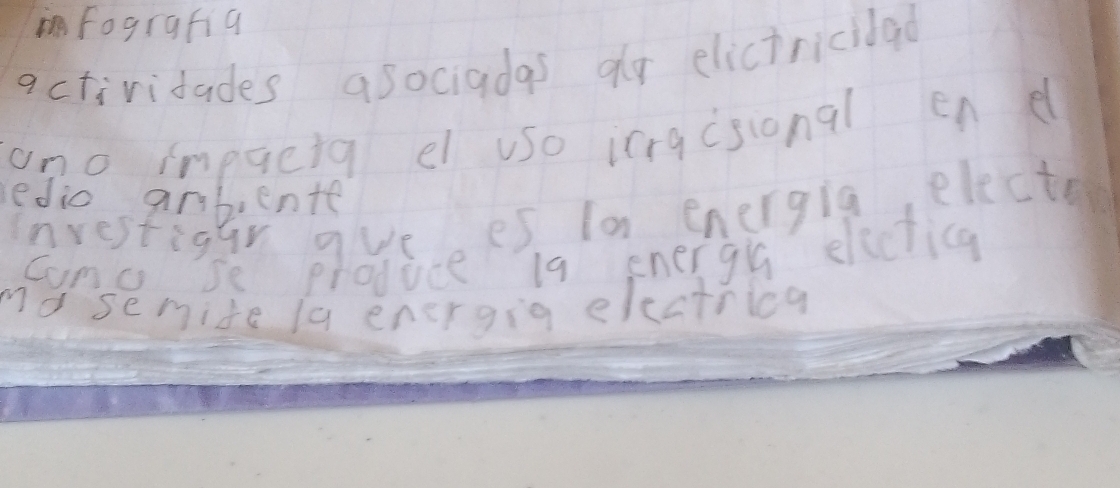 infografia
actividades asociadas ala elictricidad
omo impacta el uso irracsional en el
edio ambiente
investigar que es la energia electr
como se produce la energia electica
mo se mide la energia electrica